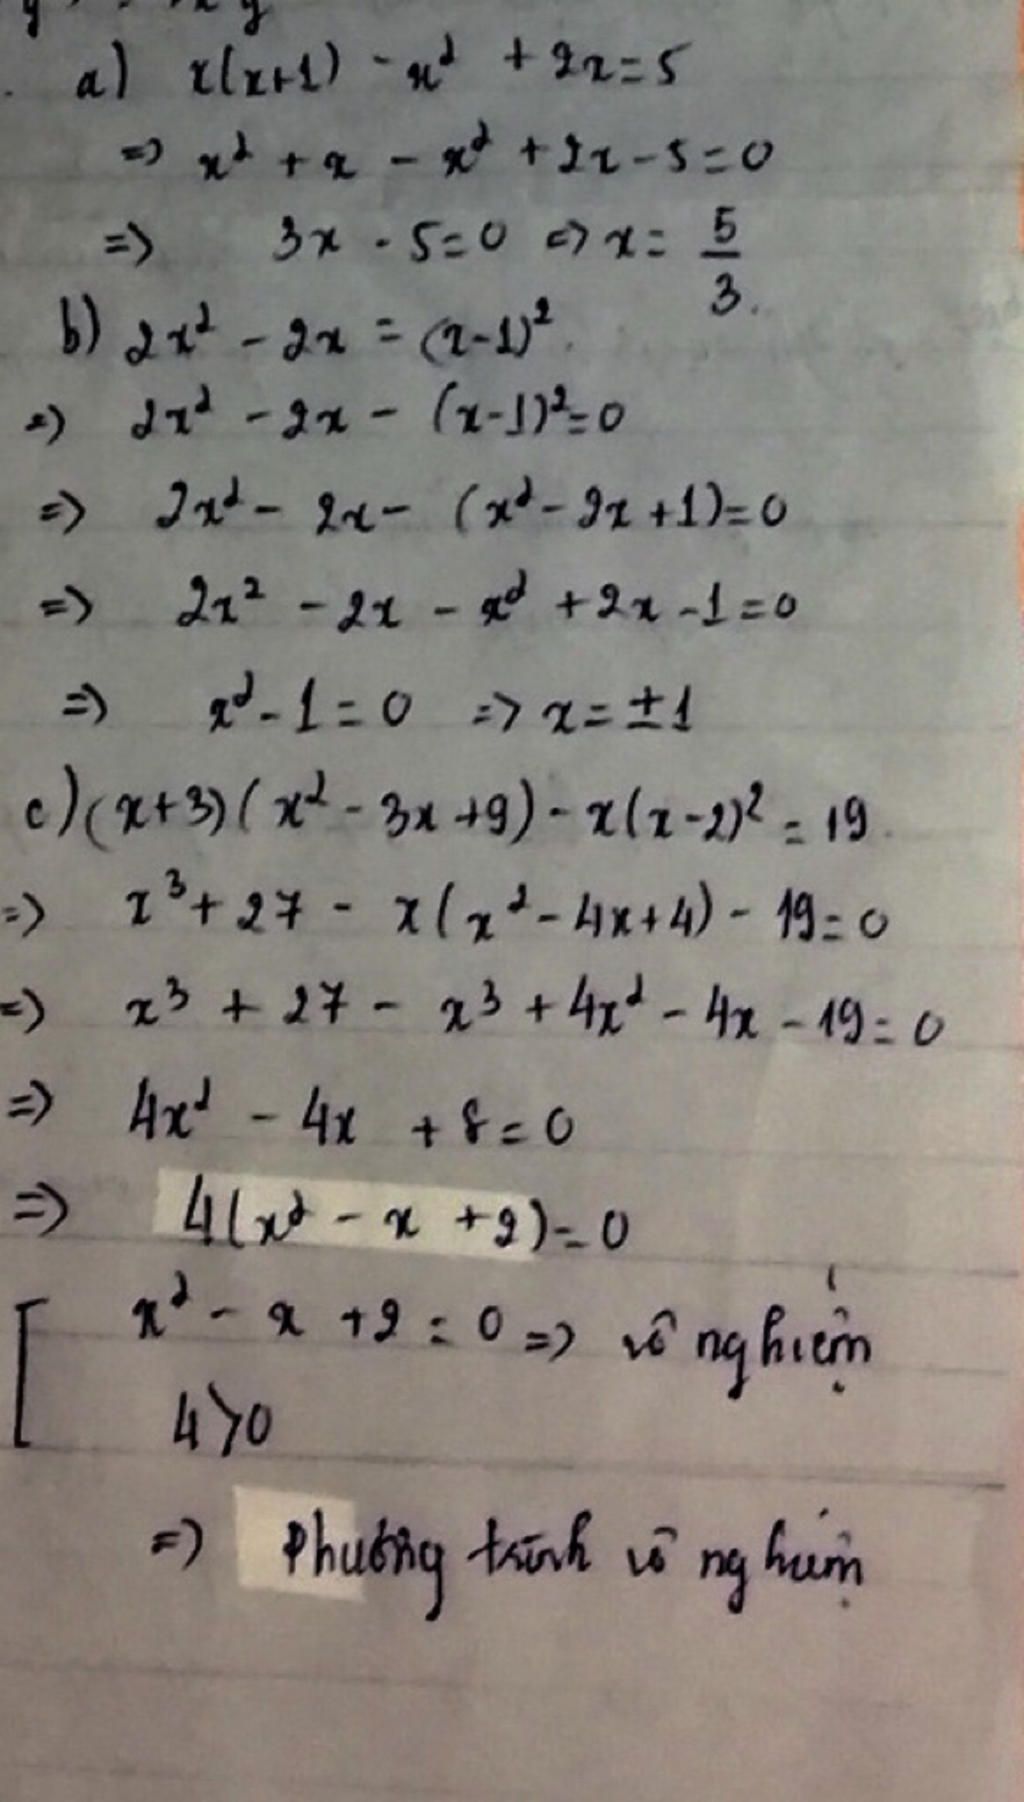 a) x(x+1) - x² + 2x = 5
=> x² + x - x² + 2x - 5 = 0
=> 3x - 5 = 0 => x = 5/3.
b) 2x² - 2x = (x-1)².
=> 2x² - 2x - (x-1)² = 0
=> 2x² - 2x - (x² - 2x + 1) = 0
=> 2x² - 2x - x² + 2x - 1 = 0
=> x² - 1 = 0 => x = ±1
c) (x+3)(x² - 3x + 9) - x(x-2)² = 19.
=> x³ + 27 - x(x² - 4x + 4) - 19 = 0
=> x³ + 27 - x³ + 4x² - 4x - 19 = 0
=> 4x² - 4x + 8 = 0
=> 4(x² - x + 2) = 0
[ x² - x + 2 = 0 => vô nghiệm
4 > 0
=> Phương trình vô nghiệm